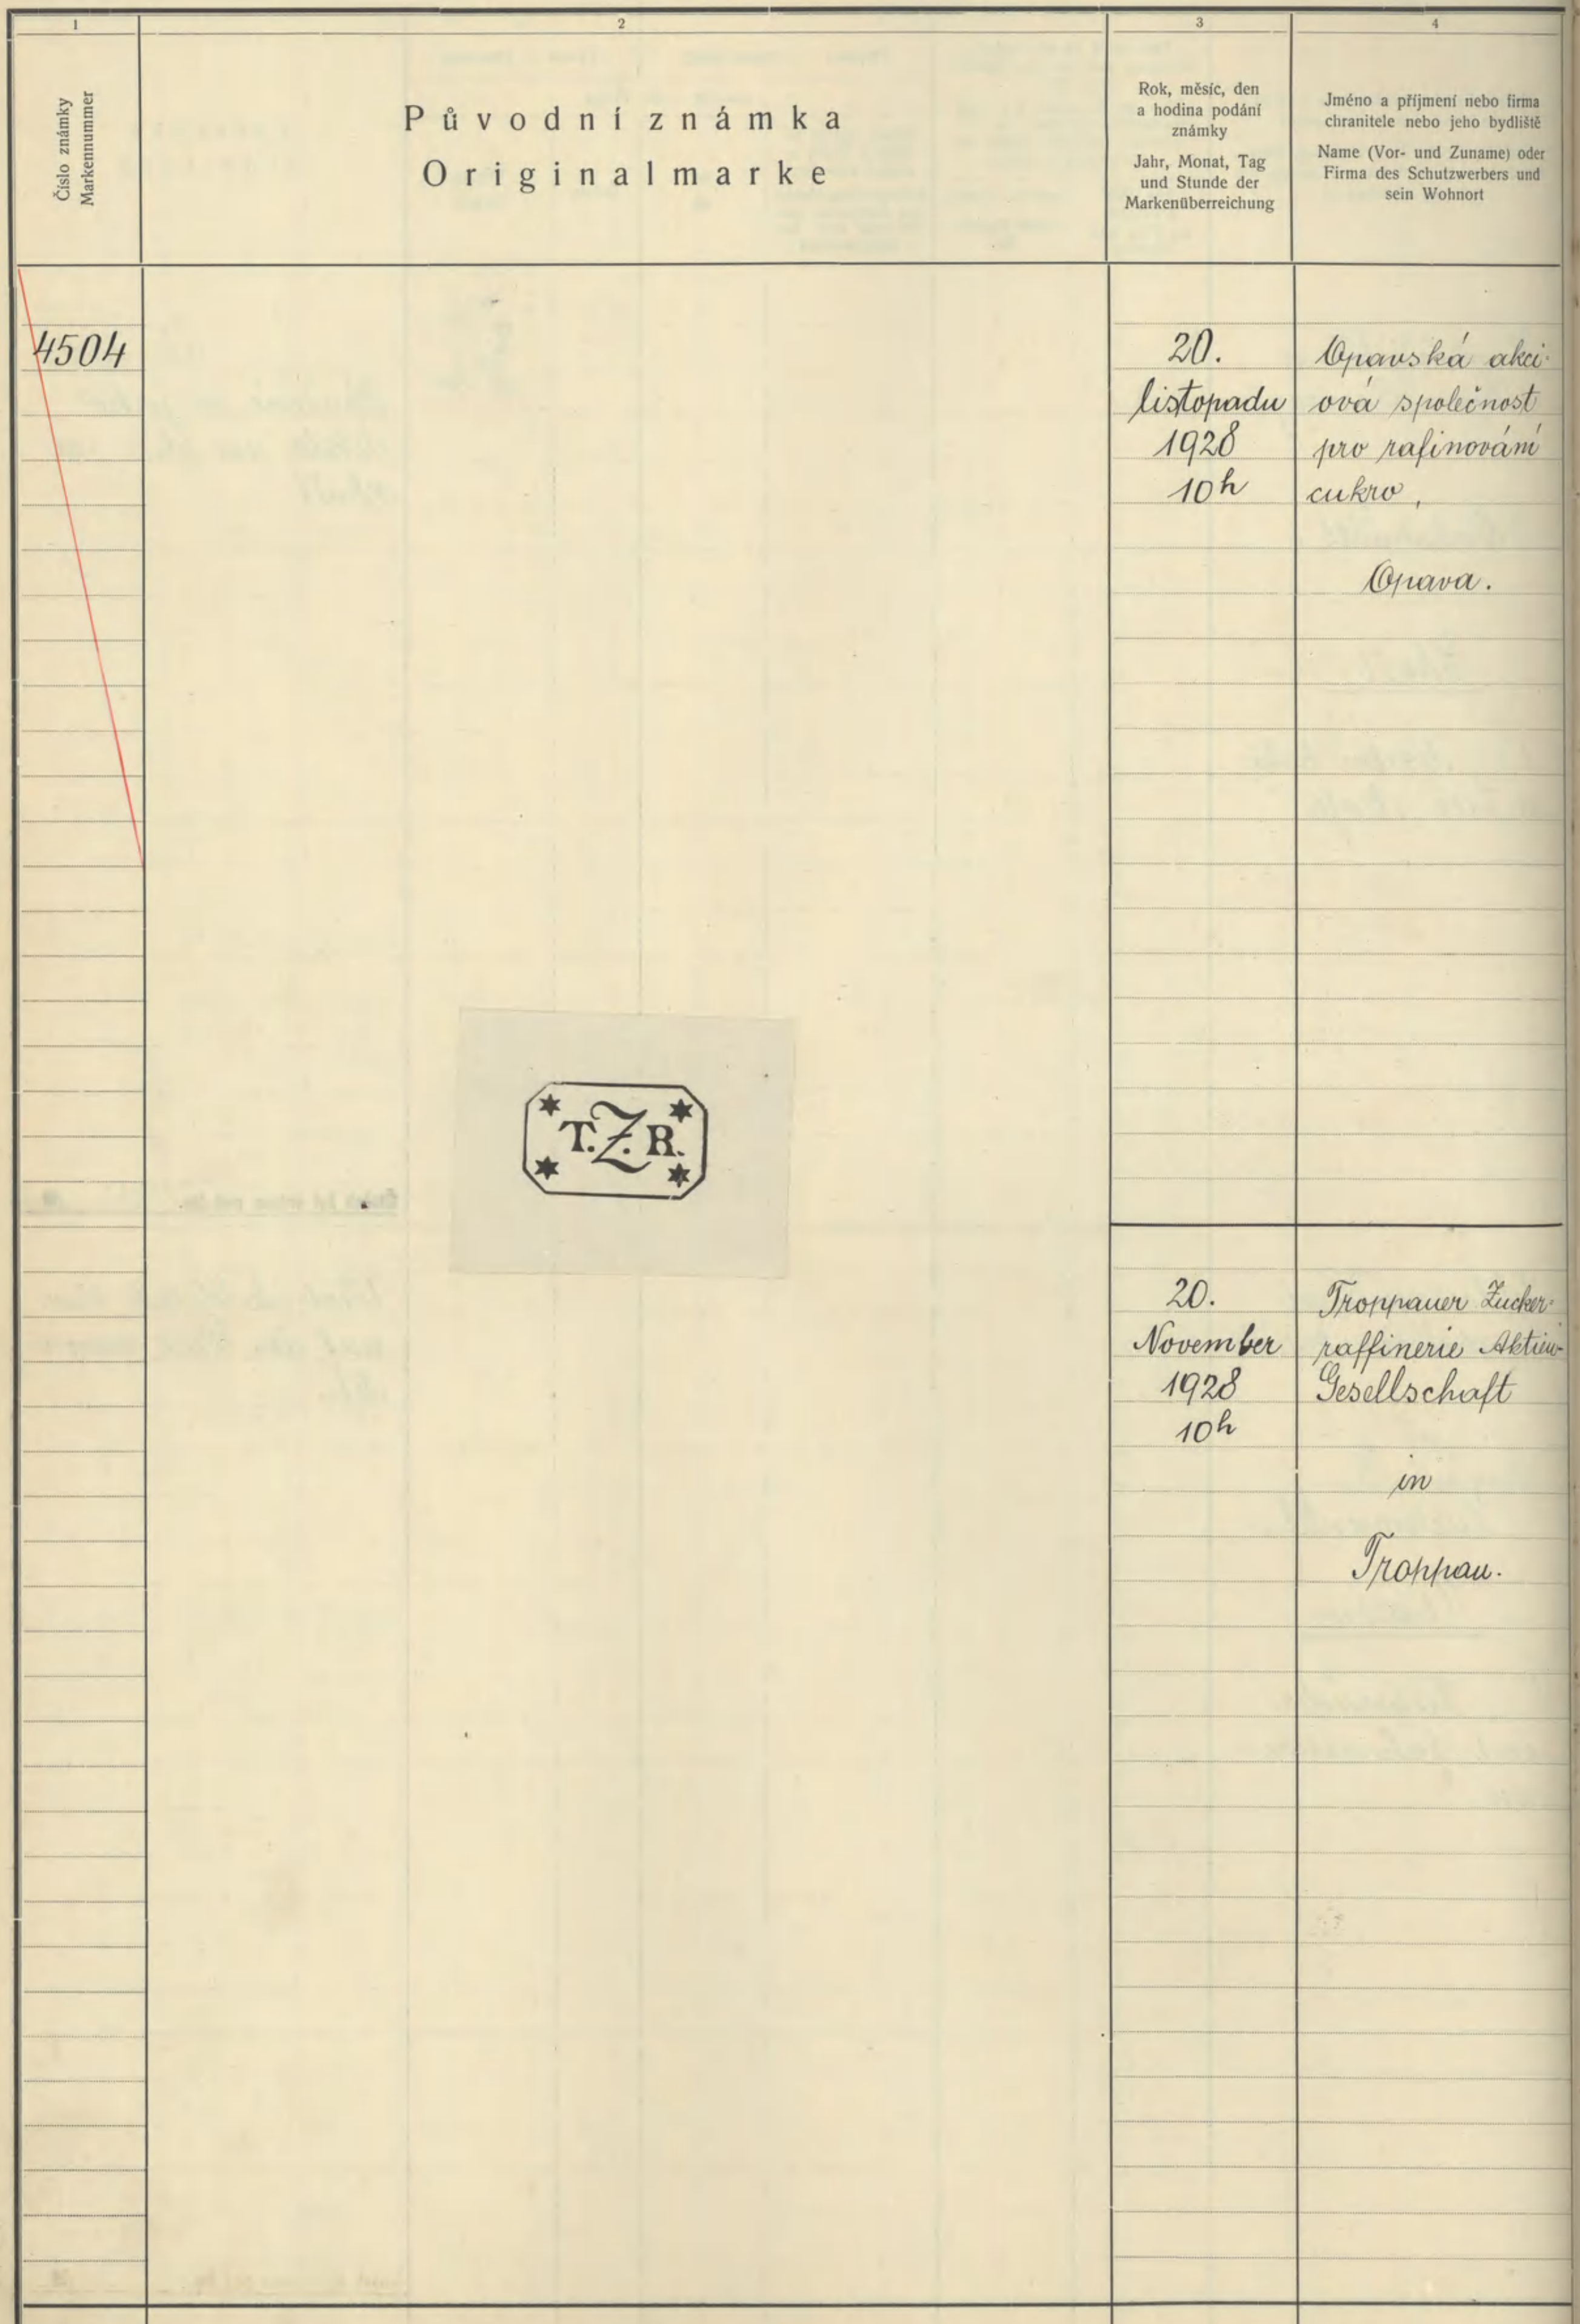 1
2
3
4
Číslo známky
Markennummer
Původní známka
Originalmarke
Rok, měsíc, den
a hodina podání
známky
Jahr, Monat, Tag
und Stunde der
Markenüberreichung
Jméno a příjmení nebo firma
chranitele nebo jeho bydliště
Name (Vor- und Zuname) oder
Firma des Schutzwerbers und
sein Wohnort
4504
20.
listopadu
1928
10h
Opavská akci-
ová společnost
pro rafinování
cukro,
Opava.
T.Z.R.
20.
November
1928
10h
Troppauer Zucker-
raffinerie Aktien-
Gesellschaft
in
Troppau.